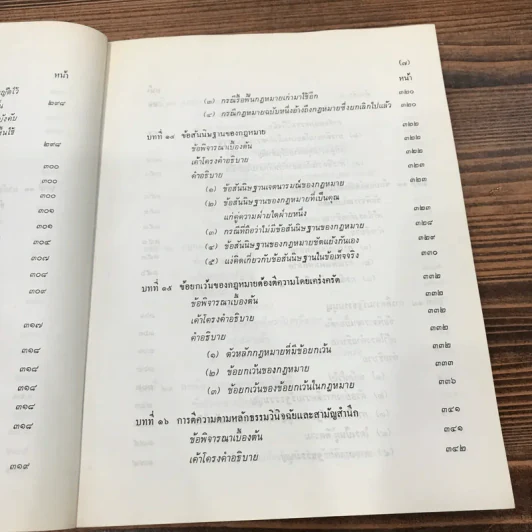 หน้า
๒๙๘
๒๙๘
๓๐๐
๓๐๐
๓๐๑
๓๐๑
๓๐๔
๓๐๗
๓๐๘
๓๐๙
๓๑๗
๓๑๘
๓๑๘
๓๑๘
๓๑๘
๓๑๘
๓๑๙
(๗)
หน้า
(๓) กรณีรื้อฟื้นกฎหมายเก่ามาใช้อีก ๓๒๐
(๔) กรณีกฎหมายฉบับหนึ่งอ้างถึงกฎหมายซึ่งยกเลิกไปแล้ว ๓๒๐
บทที่ ๑๔ ข้อสันนิษฐานของกฎหมาย ๓๒๒
ข้อพิจารณาเบื้องต้น ๓๒๒
เค้าโครงคำอธิบาย ๓๒๒
คำอธิบาย ๓๒๓
(๑) ข้อสันนิษฐานเจตนารมณ์ของกฎหมาย ๓๒๓
(๒) ข้อสันนิษฐานของกฎหมายที่เป็นคุณ
แก่คู่ความฝ่ายใดฝ่ายหนึ่ง ๓๒๓
(๓) กรณีที่ถือว่าไม่มีข้อสันนิษฐานของกฎหมาย ๓๒๘
(๔) ข้อสันนิษฐานของกฎหมายขัดแย้งกันเอง ๓๒๙
(๕) แง่คิดเกี่ยวกับข้อสันนิษฐานในข้อเท็จจริง ๓๓๐
บทที่ ๑๕ ข้อยกเว้นของกฎหมายต้องตีความโดยเคร่งครัด ๓๓๒
ข้อพิจารณาเบื้องต้น ๓๓๒
เค้าโครงคำอธิบาย ๓๓๒
คำอธิบาย ๓๓๒
(๑) ตัวหลักกฎหมายที่มีข้อยกเว้น ๓๓๒
(๒) ข้อยกเว้นของกฎหมาย ๓๓๓
(๓) ข้อยกเว้นของข้อยกเว้นในกฎหมาย ๓๓๖
บทที่ ๑๖ การตีความตามหลักธรรมวินิจฉัยและสามัญสำนึก ๓๔๑
ข้อพิจารณาเบื้องต้น ๓๔๑
เค้าโครงคำอธิบาย ๓๔๒